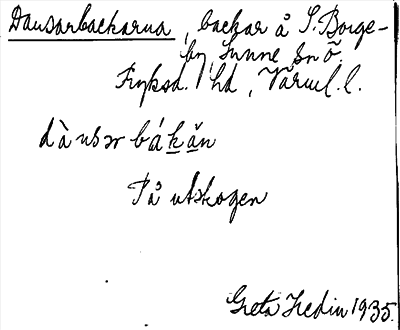 Dansarbackarna, backar å S. Borge-
by, Sunne sn Ö.
Fryksd. hd, Värml. l.
dànsər bákăn
På utskogen
Greta Hedin 1935.